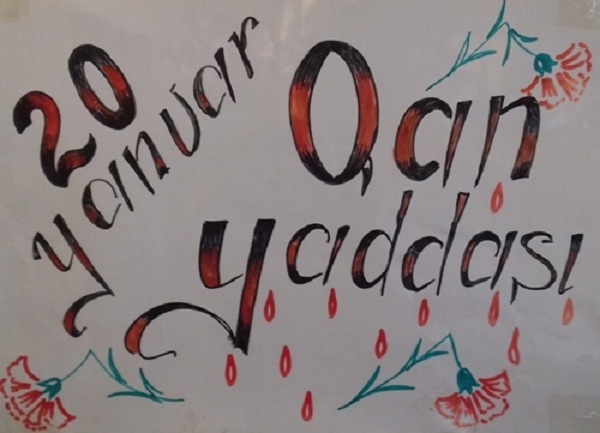 20 yanvar
Qan
yaddaşı